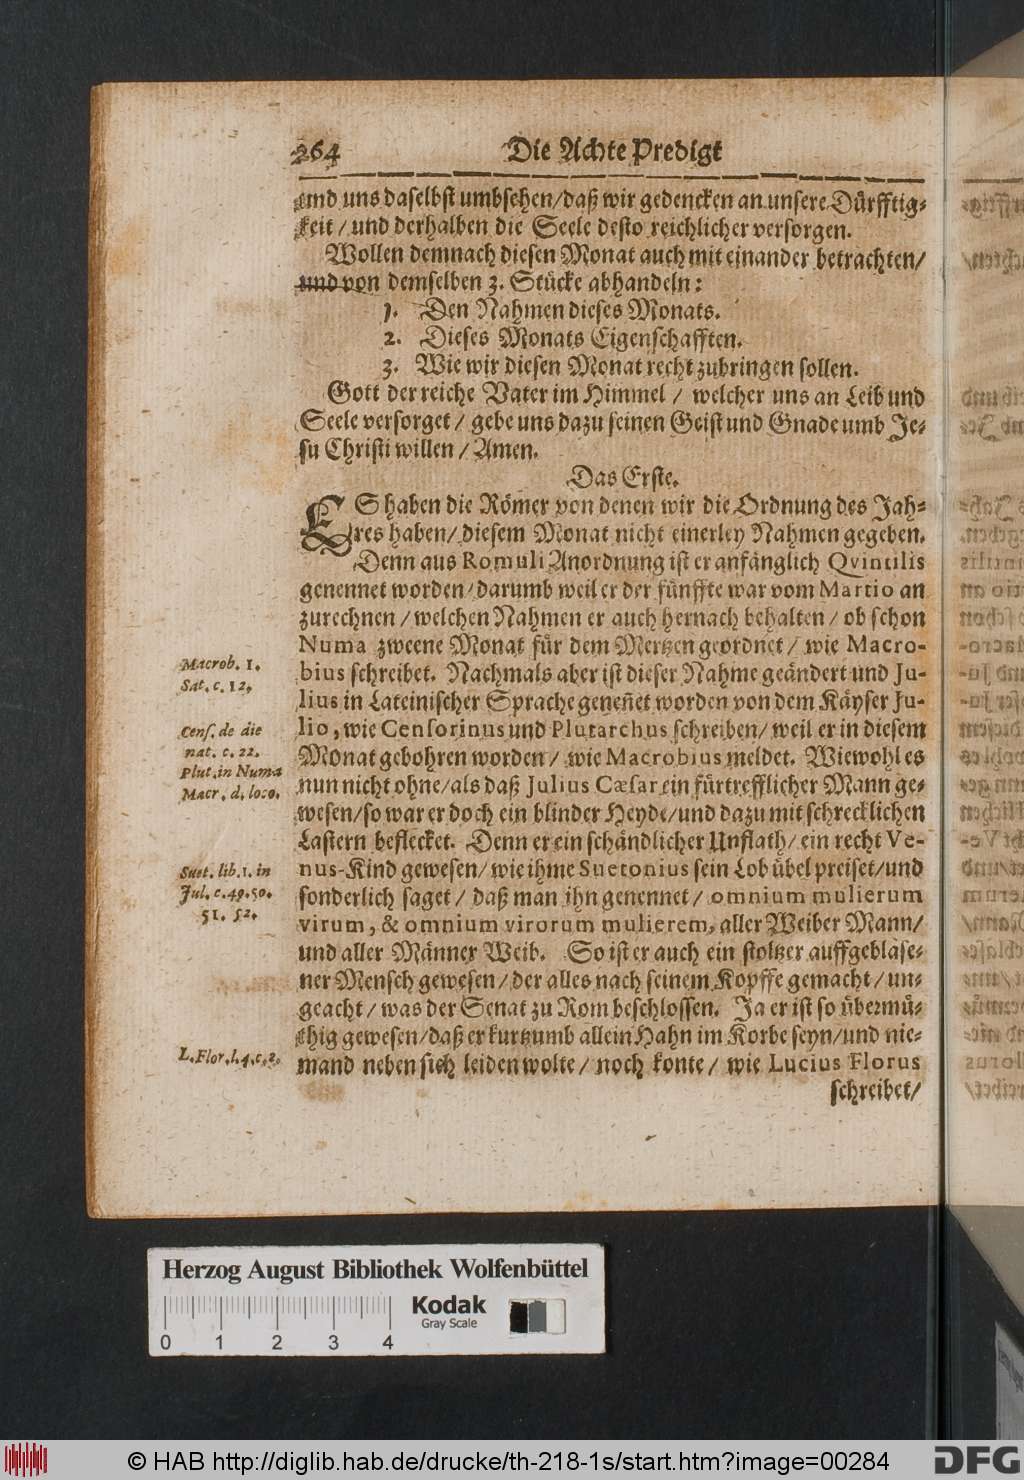 264 Die Achte Predigt
und uns daselbst umbsehen/daß wir gedencken an unsere Dürfftig-
keit/ und derhalben die Seele desto reichlicher versorgen.
Wollen demnach diesen Monat auch mit einander betrachten/
und von demselben 3. Stücke abhandeln:
1. Den Nahmen dieses Monats.
2. Dieses Monats Eigenschafften.
3. Wie wir diesen Monat recht zubringen sollen.
Gott der reiche Vater im Himmel / welcher uns an Leib und
Seele versorget / gebe uns dazu seinen Geist und Gnade umb Je-
su Christi willen / Amen.
Das Erste.
ES haben die Römer von denen wir die Ordnung des Jah-
res haben/ diesem Monat nicht einerley Nahmen gegeben.
Denn aus Romuli Anordnung ist er anfänglich Qvintilis
genennet worden/ darumb weil er der fünffte war vom Martio an
zurechnen / welchen Nahmen er auch hernach behalten / ob schon
Numa zweene Monat für dem Mertzen geordnet / wie Macro-
bius schreibet. Nachmals aber ist dieser Nahme geändert und Ju-
lius in Lateinischer Sprache geneñet worden von dem Käyser Ju-
lio, wie Censorinus und Plutarchus schreiben/ weil er in diesem
Monat gebohren worden / wie Macrobius meldet. Wiewohl es
nun nicht ohne/als daß Julius Cæsar ein fürtrefflicher Mann ge-
wesen/so war er doch ein blinder Heyde/und dazu mit schrecklichen
Lastern beflecket. Denn er ein schändlicher Unflath/ ein recht Ve-
nus-Kind gewesen/ wie ihme Suetonius sein Lob übel preiset/und
sonderlich saget / daß man ihn genennet / omnium mulierum
virum, & omnium virorum mulierem, aller Weiber Mann/
und aller Männer Weib. So ist er auch ein stoltzer auffgeblase-
ner Mensch gewesen/ der alles nach seinem Kopffe gemacht / un-
geacht / was der Senat zu Rom beschlossen. Ja er ist so übermü-
thig gewesen/daß er kurtzumb allein Hahn im Korbe seyn/und nie-
mand neben sich leiden wolte/ noch konte/ wie Lucius Florus
schreibet/
Macrob. 1.
Sat. c. 12.
Cens. de die
nat. c. 22.
Plut. in Numa
Macr. d. loco.
Suet. lib. 1. in
Jul. c. 49. 50.
51. 52.
L. Flor. l. 4. c. 2.
Herzog August Bibliothek Wolfenbüttel
Kodak
Gray Scale
0 1 2 3 4
© HAB http://diglib.hab.de/drucke/th-218-1s/start.htm?image=00284
DFG